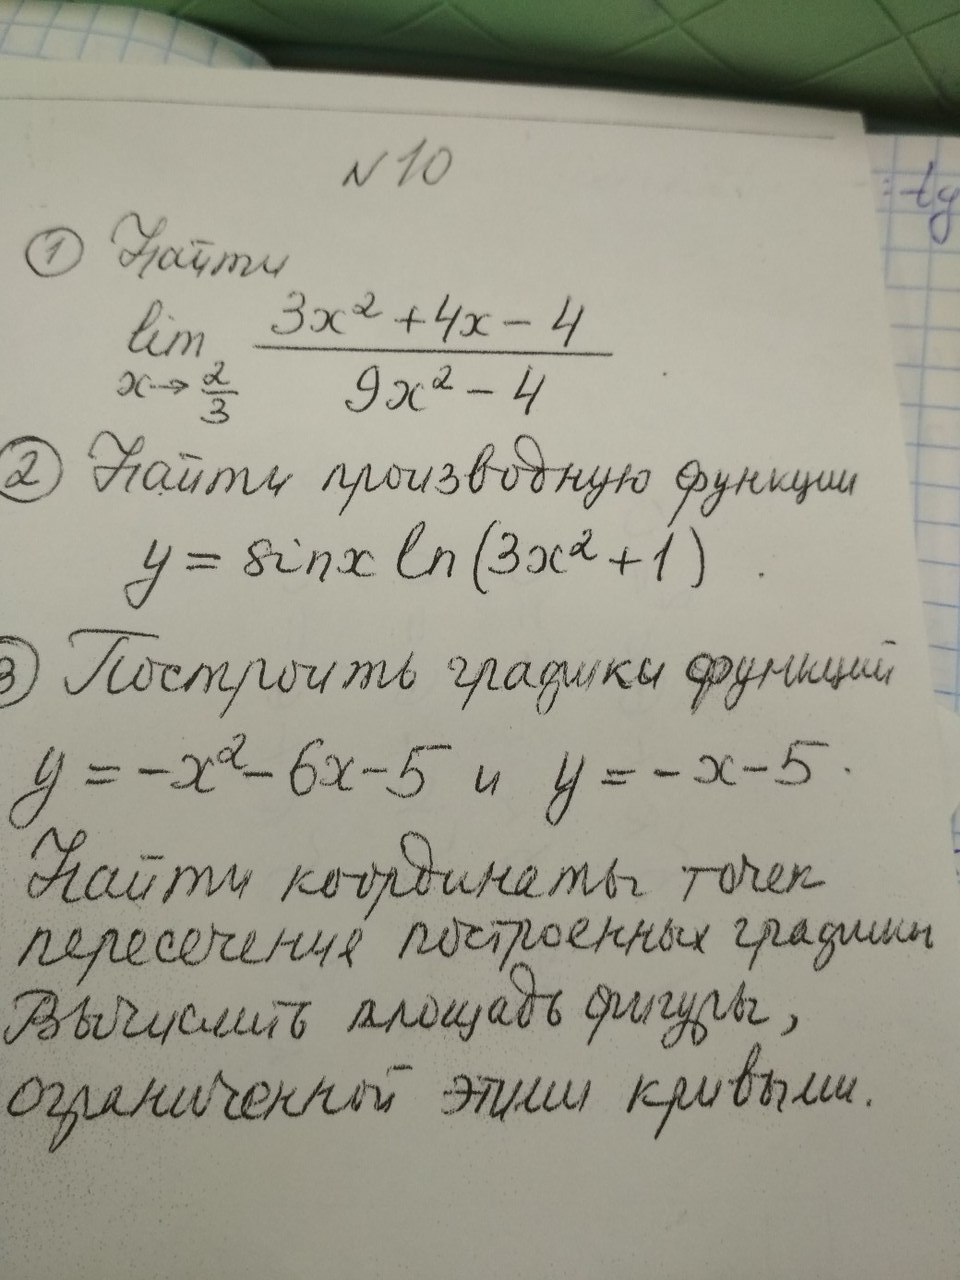 N10
① Найти
lim x→2/3 (3x² + 4x - 4)/(9x² - 4)
② Найти производную функции
y = sinx ln(3x² + 1).
3) Построить графики функций
y = -x² - 6x - 5 и y = -x - 5.
Найти координаты точек
пересечения построенных графики
Вычислить площадь фигуры,
ограниченной этими кривыми.
= tg